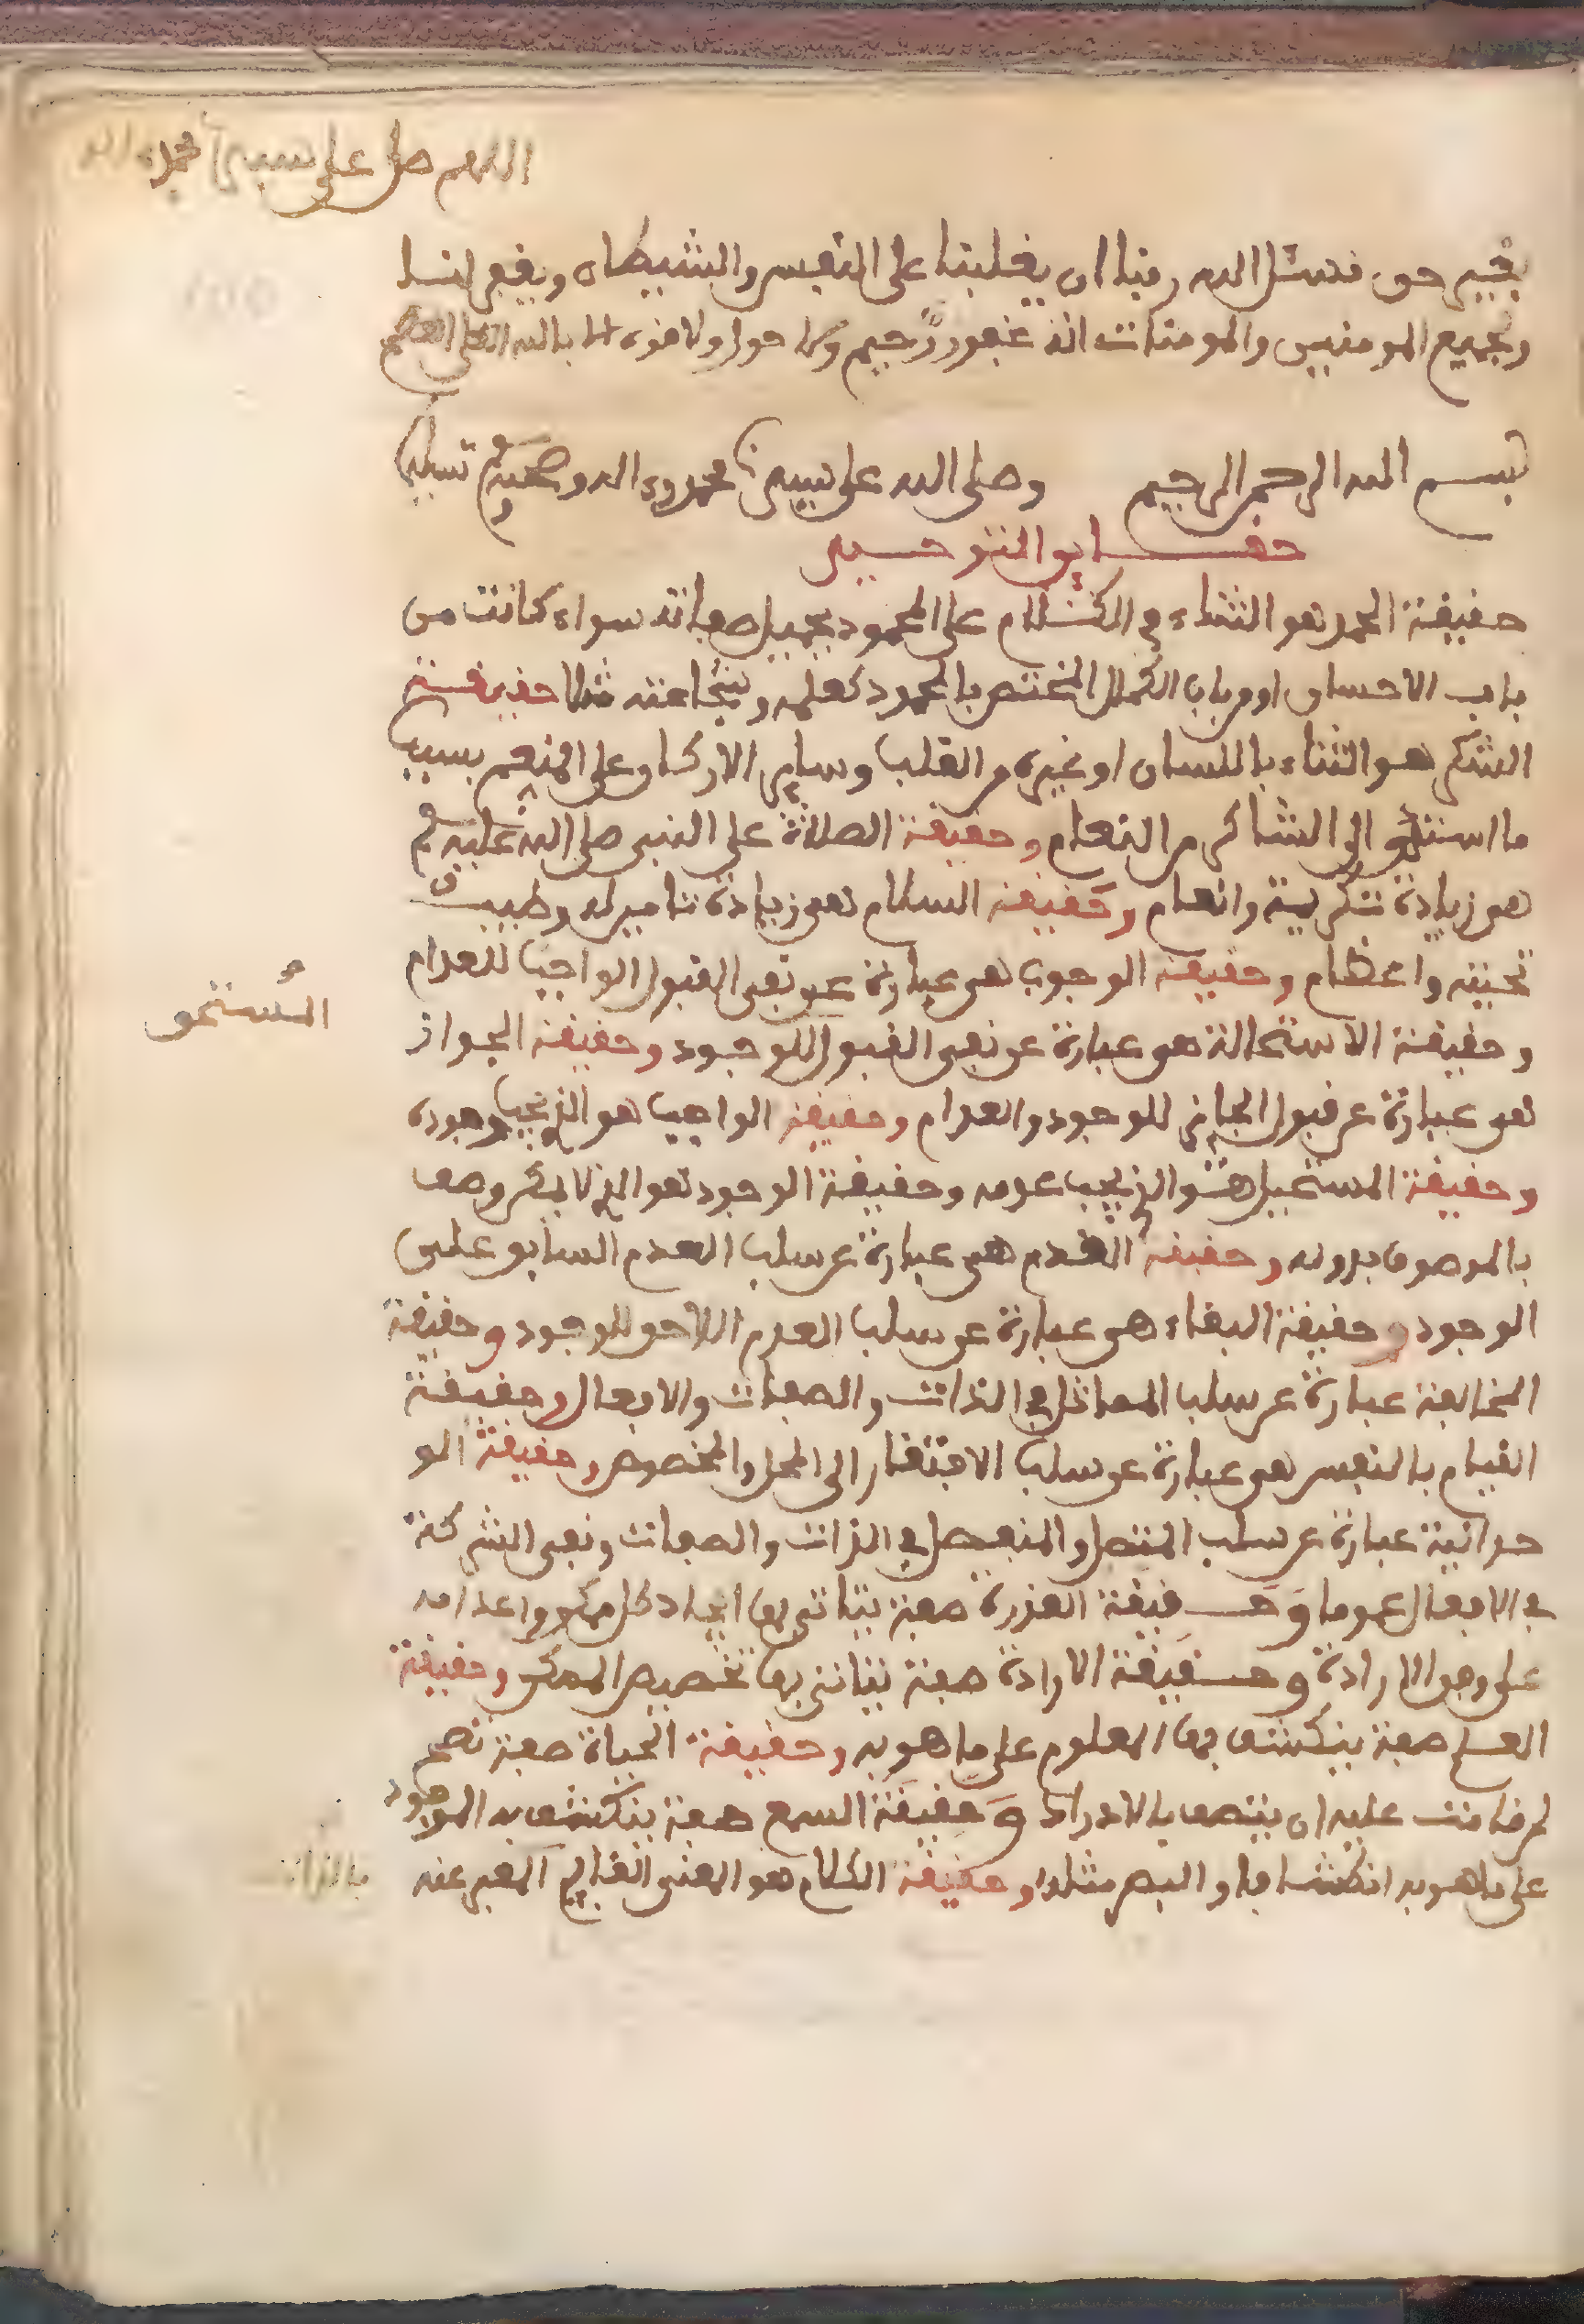 اللهم صل على سيدنا محمد
بغير حق فنسئل الله ربنا ان يغلبنا على النفس والشيطان ويغفر لنا
ولجميع المومنين والمومنات انه غفور رّحيم ولا حول ولا قوة الا بالله العلي العظيم
بسم الله الرحمن الرحيم وصلى الله على سيدنا محمد وءاله وصحبه وسلم تسليما
حقايق التوحيد
حقيقة الحمد هو الثناء في الكلام على المحمود بجميل صفاته سواء كانت من
باب الاحسان او من باب الكمال المختص بالمحمود كعلمه وشجاعته مثلا حقيقة
الشكر هو الثناء باللسان او غيره من القلب وساير الاركان على المنعم بسبب
ما استدى الى الشاكر من النعام وحقيقة الصلاة على النبي صلى الله عليه وسلم
هي زيادة تكرمة وانعام وحقيقة السلام هي زيادة تامين له وطيب
تحيته واعظام وحقيقة الوجوب هي عبارة عن نفي القبول الواجب للعدام
وحقيقة الاستحالة هي عبارة عن نفي القبول للوجود وحقيقة الجواز
المستحق
هي عبارة عن قبول الجايز للوجود والعدام وحقيقة الواجب هو الذي يجب وجوده
وحقيقة المستحيل هو الذي يجب عدمه وحقيقة الوجود هو الذي لا يمكن وصف
بالموصوف بدونه وحقيقة القدم هي عبارة عن سلب العدم السابق على
الوجود وحقيقة البقاء هي عبارة عن سلب العدم اللاحق للوجود وحقيقة
المخالفة عبارة عن سلب المماثل في الذات والصفات والافعال وحقيقة
القيام بالنفس هي عبارة عن سلب الافتقار الى المحل والمخصص وحقيقة الو
حدانية عبارة عن سلب المتصل والمنفصل في الذات والصفات ونفي الشركة
في الافعال عموما وحقيقة القدرة صفة يتاتى بها ايجاد كل ممكن واعدامه
على وجه الارادة وحقيقة الارادة صفة يتاتى بها تخصيص الممكن وحقيقة
العلم صفة ينكشف بها المعلوم على ما هو به وحقيقة الحياة صفة تصح
لمن قامت عليه ان يتصف بالادراك وحقيقة السمع صفة ينكشف به الموجود
على ما هو به انكشافا والبصر مثله وحقيقة الكلام هو المعنى القايم المعبر عنه
بالذات